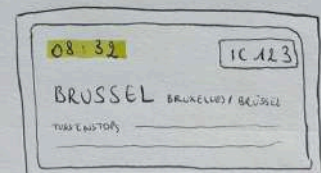 08:32 IC 123
BRUSSEL BRUXELLES/ BRÜSSEL
TUSSENSTOPS